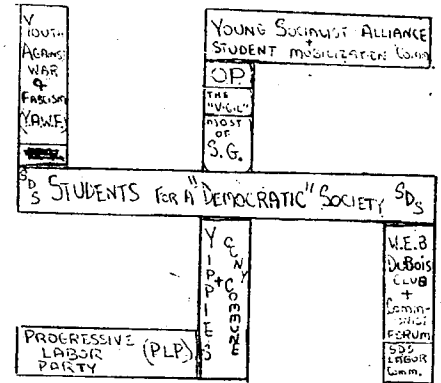 YOUTH
AGAINST
WAR
&
FASCISM
(Y.A.W.F.)
YOUNG SOCIALIST ALLIANCE
+
STUDENT MOBILIZATION Comm
OP.
THE
"VIGIL"
MOST
OF
S.G.
SDS STUDENTS FOR A "DEMOCRATIC" SOCIETY SDS
YIPPIES
+
CCNY COMMUNE
W.E.B
DUBOIS
CLUB
+
Commun-
ist
FORUM
SDS
LABOR
Comm.
PROGRESSIVE
LABOR (PLP)
PARTY